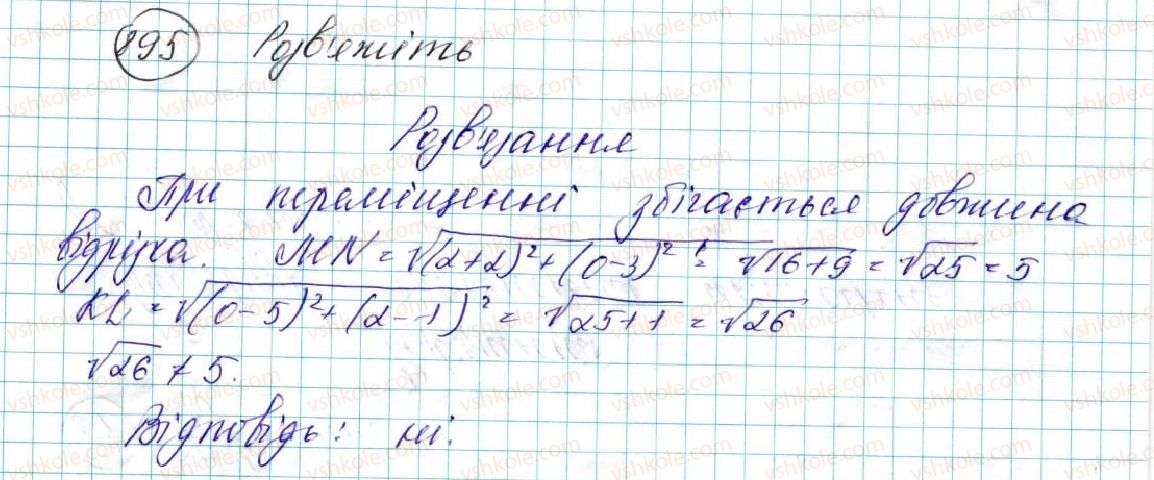 895 Розв'яжіть
Розв'язання
При переміщенні збігається довжина
відрізка. MN = √(2+2)²+(0-3)² = √16+9 = √25 = 5
KL = √(0-5)²+(2-1)² = √25+1 = √26
√26 ≠ 5.
Відповідь: ні.